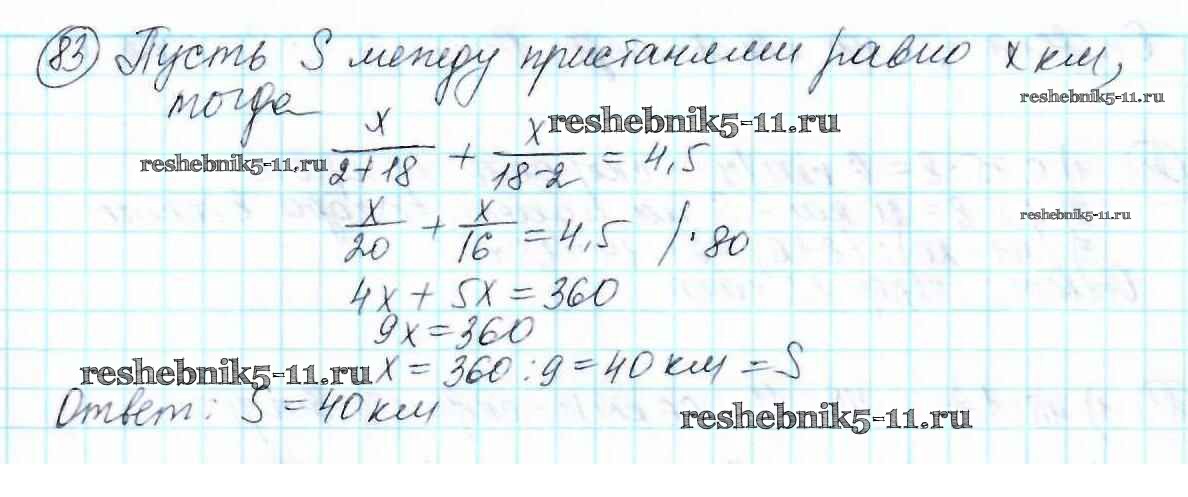 83 Пусть S между пристанями равно x км,
reshebnik5-11.ru
тогда
reshebnik5-11.ru
reshebnik5-11.ru
x/(2+18) + x/(18-2) = 4,5
reshebnik5-11.ru
x/20 + x/16 = 4,5 /·80
4x + 5x = 360
9x = 360
reshebnik5-11.ru
x = 360 : 9 = 40 км = S
Ответ: S = 40 км
reshebnik5-11.ru